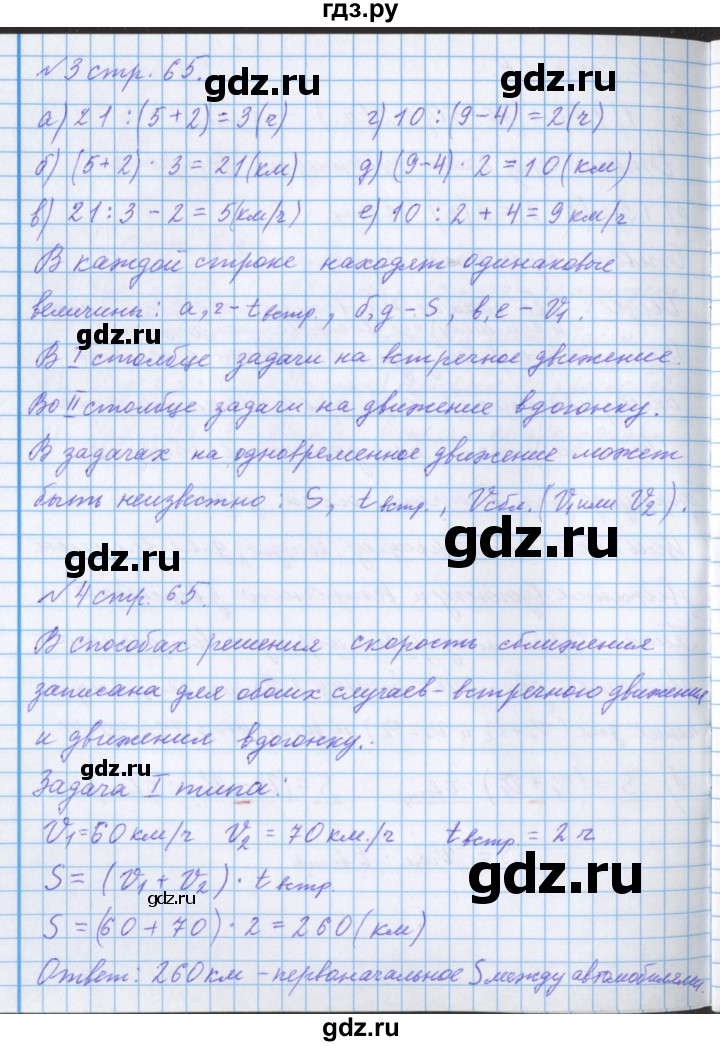 гдз.ру
№3 стр. 65.
gdz.ru
а) 21 : (5+2) = 3 (ч)   г) 10 : (9-4) = 2 (ч)
б) (5+2) · 3 = 21 (км)   д) (9-4) · 2 = 10 (км)
в) 21 : 3 - 2 = 5 (км/ч)   е) 10 : 2 + 4 = 9 км/ч
gdz.ru
gdz.ru
В каждой строке находят одинаковые
величины: а, г - t встр., б, д - S, в, е - V₁.
gdz.ru
В I столбце задачи на встречное движение.
Во II столбце задачи на движение вдогонку.
В задачах на одновременное движение может
быть неизвестно: S, t встр., Vсбл. (V₁ или V₂).
gdz.ru
gdz.ru
№4 стр. 65.
В способах решения скорость сближения
записана для обоих случаев - встречного движения
и движения вдогонку.
gdz.ru
Задача I типа:
V₁ = 60 км/ч   V₂ = 70 км./ч   t встр = 2 ч
S = (V₁ + V₂) · t встр.
gdz.ru
gdz.ru
S = (60 + 70) · 2 = 260 (км)
Ответ: 260 км - первоначальное S между автомобилями.
gdz.ru